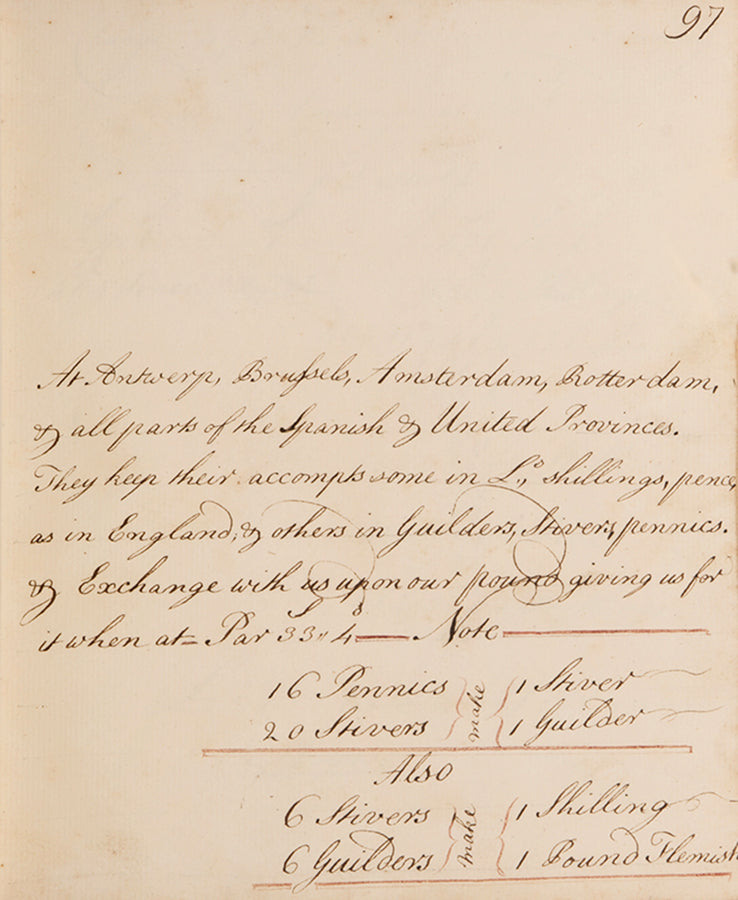 97
At Antwerp, Brussels, Amsterdam, Rotterdam,
& all parts of the Spanish & United Provinces.
They keep their accompts some in L.s shillings, pence,
as in England, & others in Guilders, Stivers, pennics.
& Exchange with us upon our pound giving us for
it when at Par 33s,, 4d — Note —
16 Pennics } make { 1 Stiver
20 Stivers } make { 1 Guilder
Also
6 Stivers } make { 1 Shilling
6 Guilders } make { 1 Pound Flemish